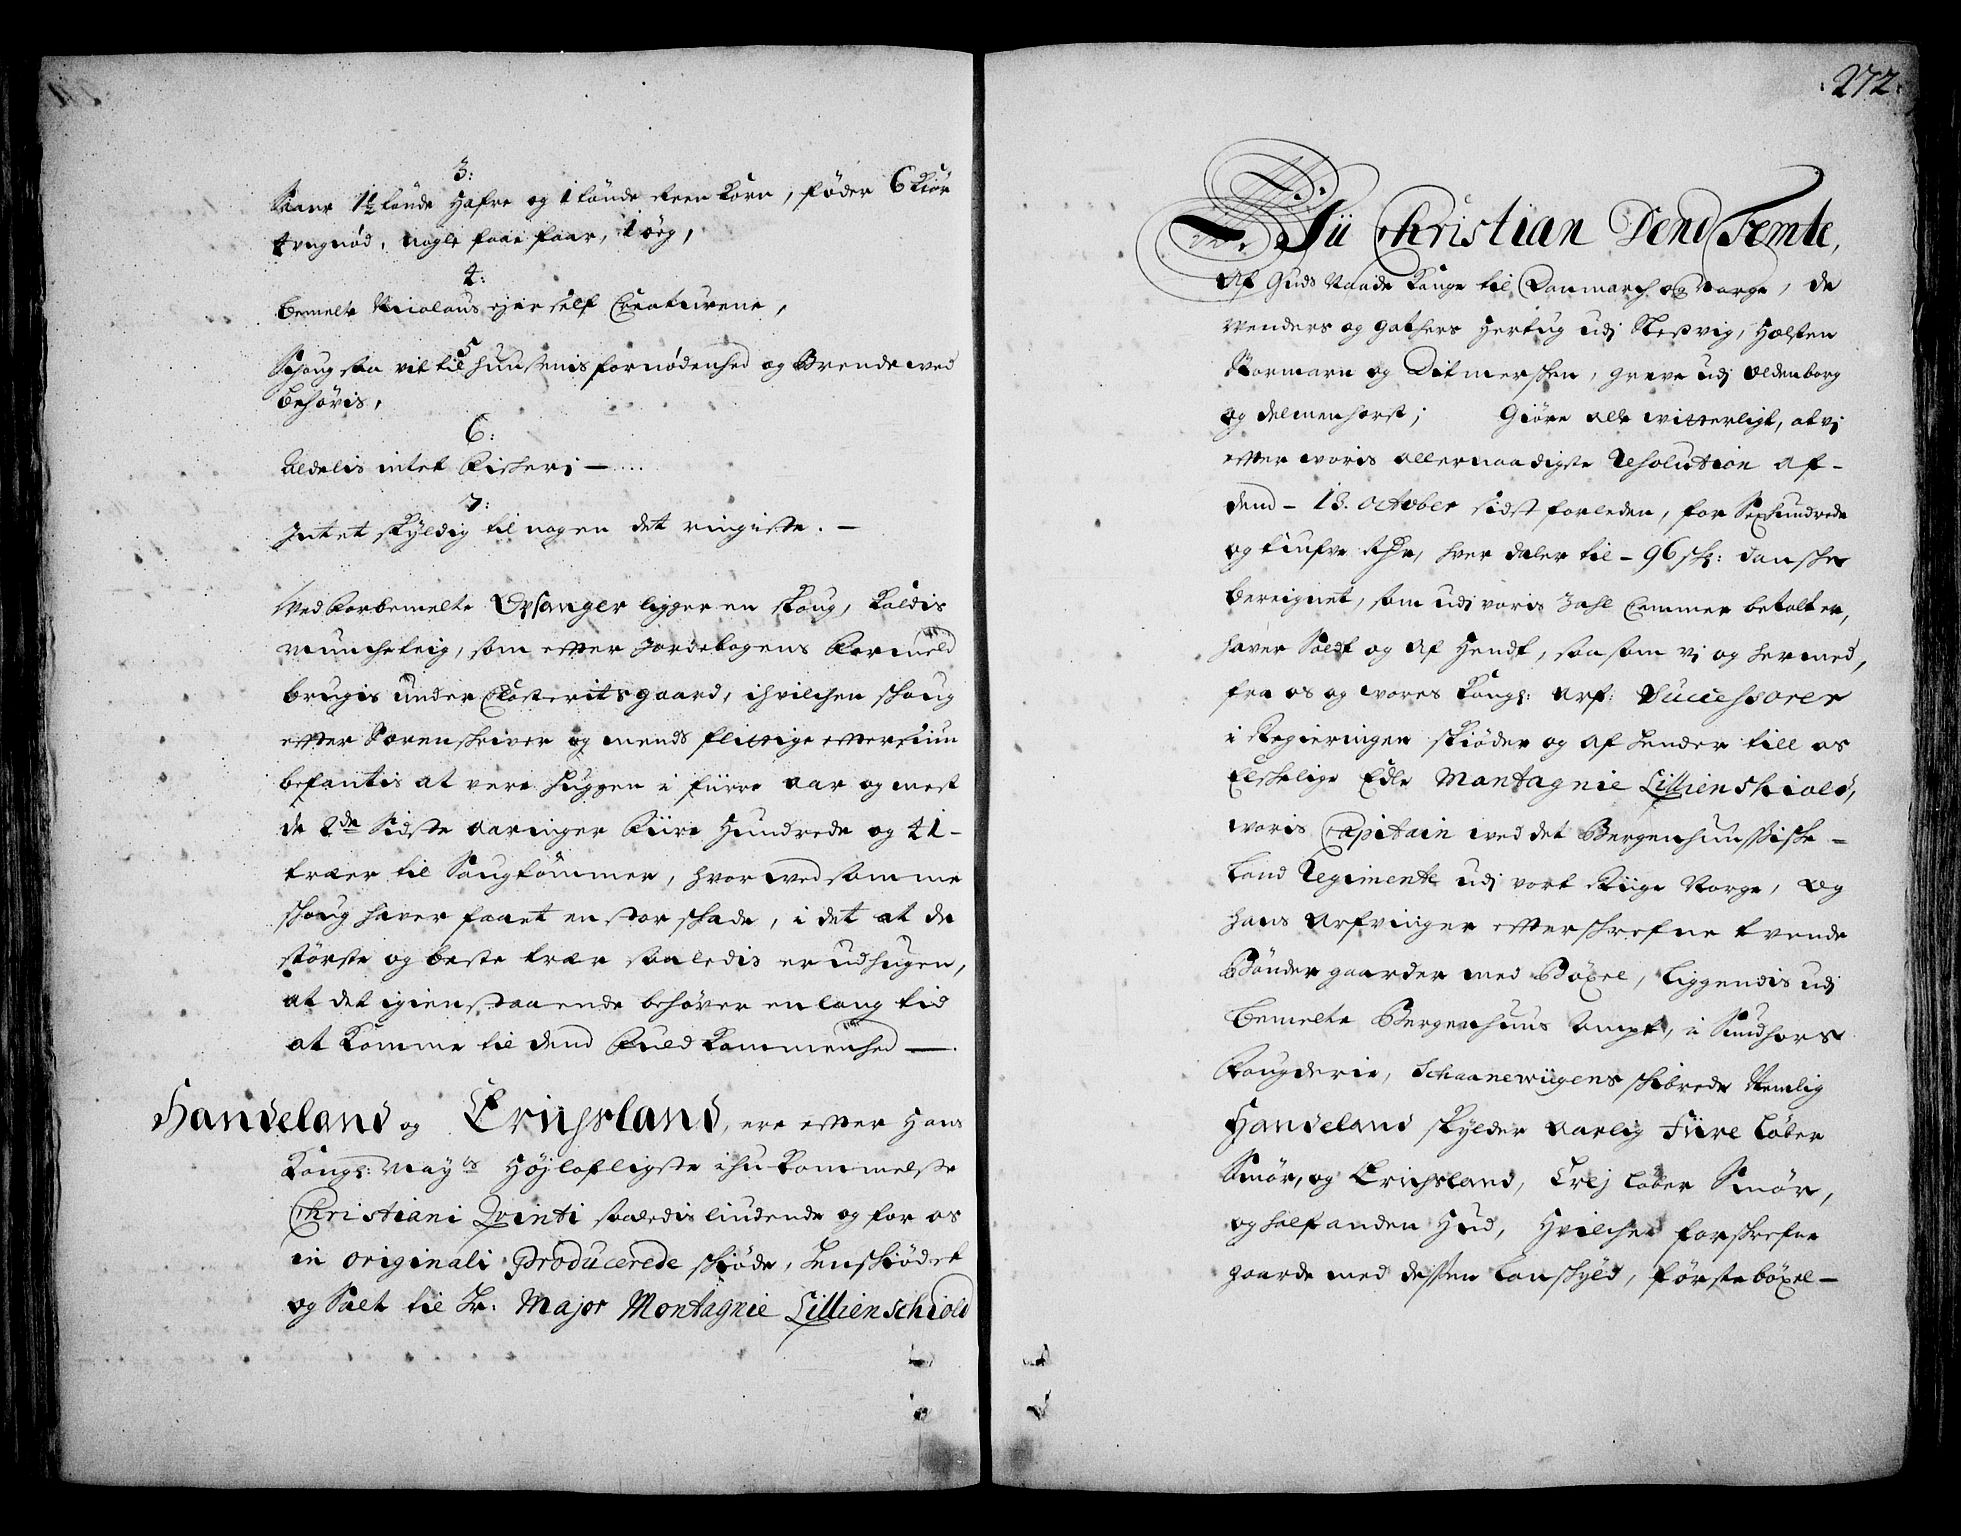 3:
Saar 1½ tønde Hafre og 1 tønde reen Korn, føder 6 Kiør
4 ungnød, nogle faae faar, 1 ørg,
4:
bemelte Nicolaus ejer self Creaturene,
5
Schoug saa vit til Huusenis fornødenhed og Brendeved
behøvis,
6:
Aldelis intet Fischeri —
7:
Intet skyldig til nogen det ringiste. —
Ved forbemelte Opsanger ligger en skoug, Kaldis
Muncheteig, som efter Jordebogens Formeld
brugis under Closteritsgaard, ihvilchen schoug
efter Sorenskriver og mends flittige eftersiun
befantis at vere huggen i fiirre aar og mest
de 2de Sidste aaringer Fiire Hundrede og 41-
træer til Saugtømmer, hvorved samme
schoug haver faaet en stor schade, i det at de
største og beste træer saaledis er udhugen,
at det igienstaaende behøver en lang tid
at Komme til dend Fuld Kommenhed —.
Handeland og Erichsland, ere efter Hans
Kongl: Mayts Højlofligste ihu Kommelse
Christiani Qvinti saaledis liudende og for os
in originali Producerede schiøde, henschiødet
og Solt til Hr. Major Montagnie Lillienschiold
272.
Vii Christian Dend Femte,
Af Guds Naade Konge til Danmarch og Norge, de
Wenders og Gothers Hertug udj Slesvig, Holsten
Stormarn og Ditmerschen, Greve udj Oldenborg
og Delmenhorst; Giøre alle witterligt, at vj
efter woris allernaadigste Resolution af -
dend - 13. October sidst forleden, for Sexhundrede
og tiufve Rdr, hver daler til - 96 sk: danske
bereignet, som udj voris Zahl Cammer betalt er,
haver Soldt og af Hendt, saasom vj og hermed,
fra os og wores Kongl: Arf: Successorer
i Regieringen skiøder og af hender till os
Elskelige Edle Montagnie Lillienskiold,
woris Capitain wed det Bergenhuusiske -
Land Regimente udj vort Riige Norge, og
hans Arfvinger efterschrefne tvende
Bønder gaarder med Bøxel, liggendis udj
bemelte Bergenhuus Lampt, i Sundhors
Fougderie, Schaanewiigens skibrede Nemlig
Handeland skylder Aarlig Fiire Løber
Smør, og Erichsland, Trej Løber Smør,
og half anden Hud, Hvilche forskrefne
gaarde med dessen Lanskyld, førstebøxel -